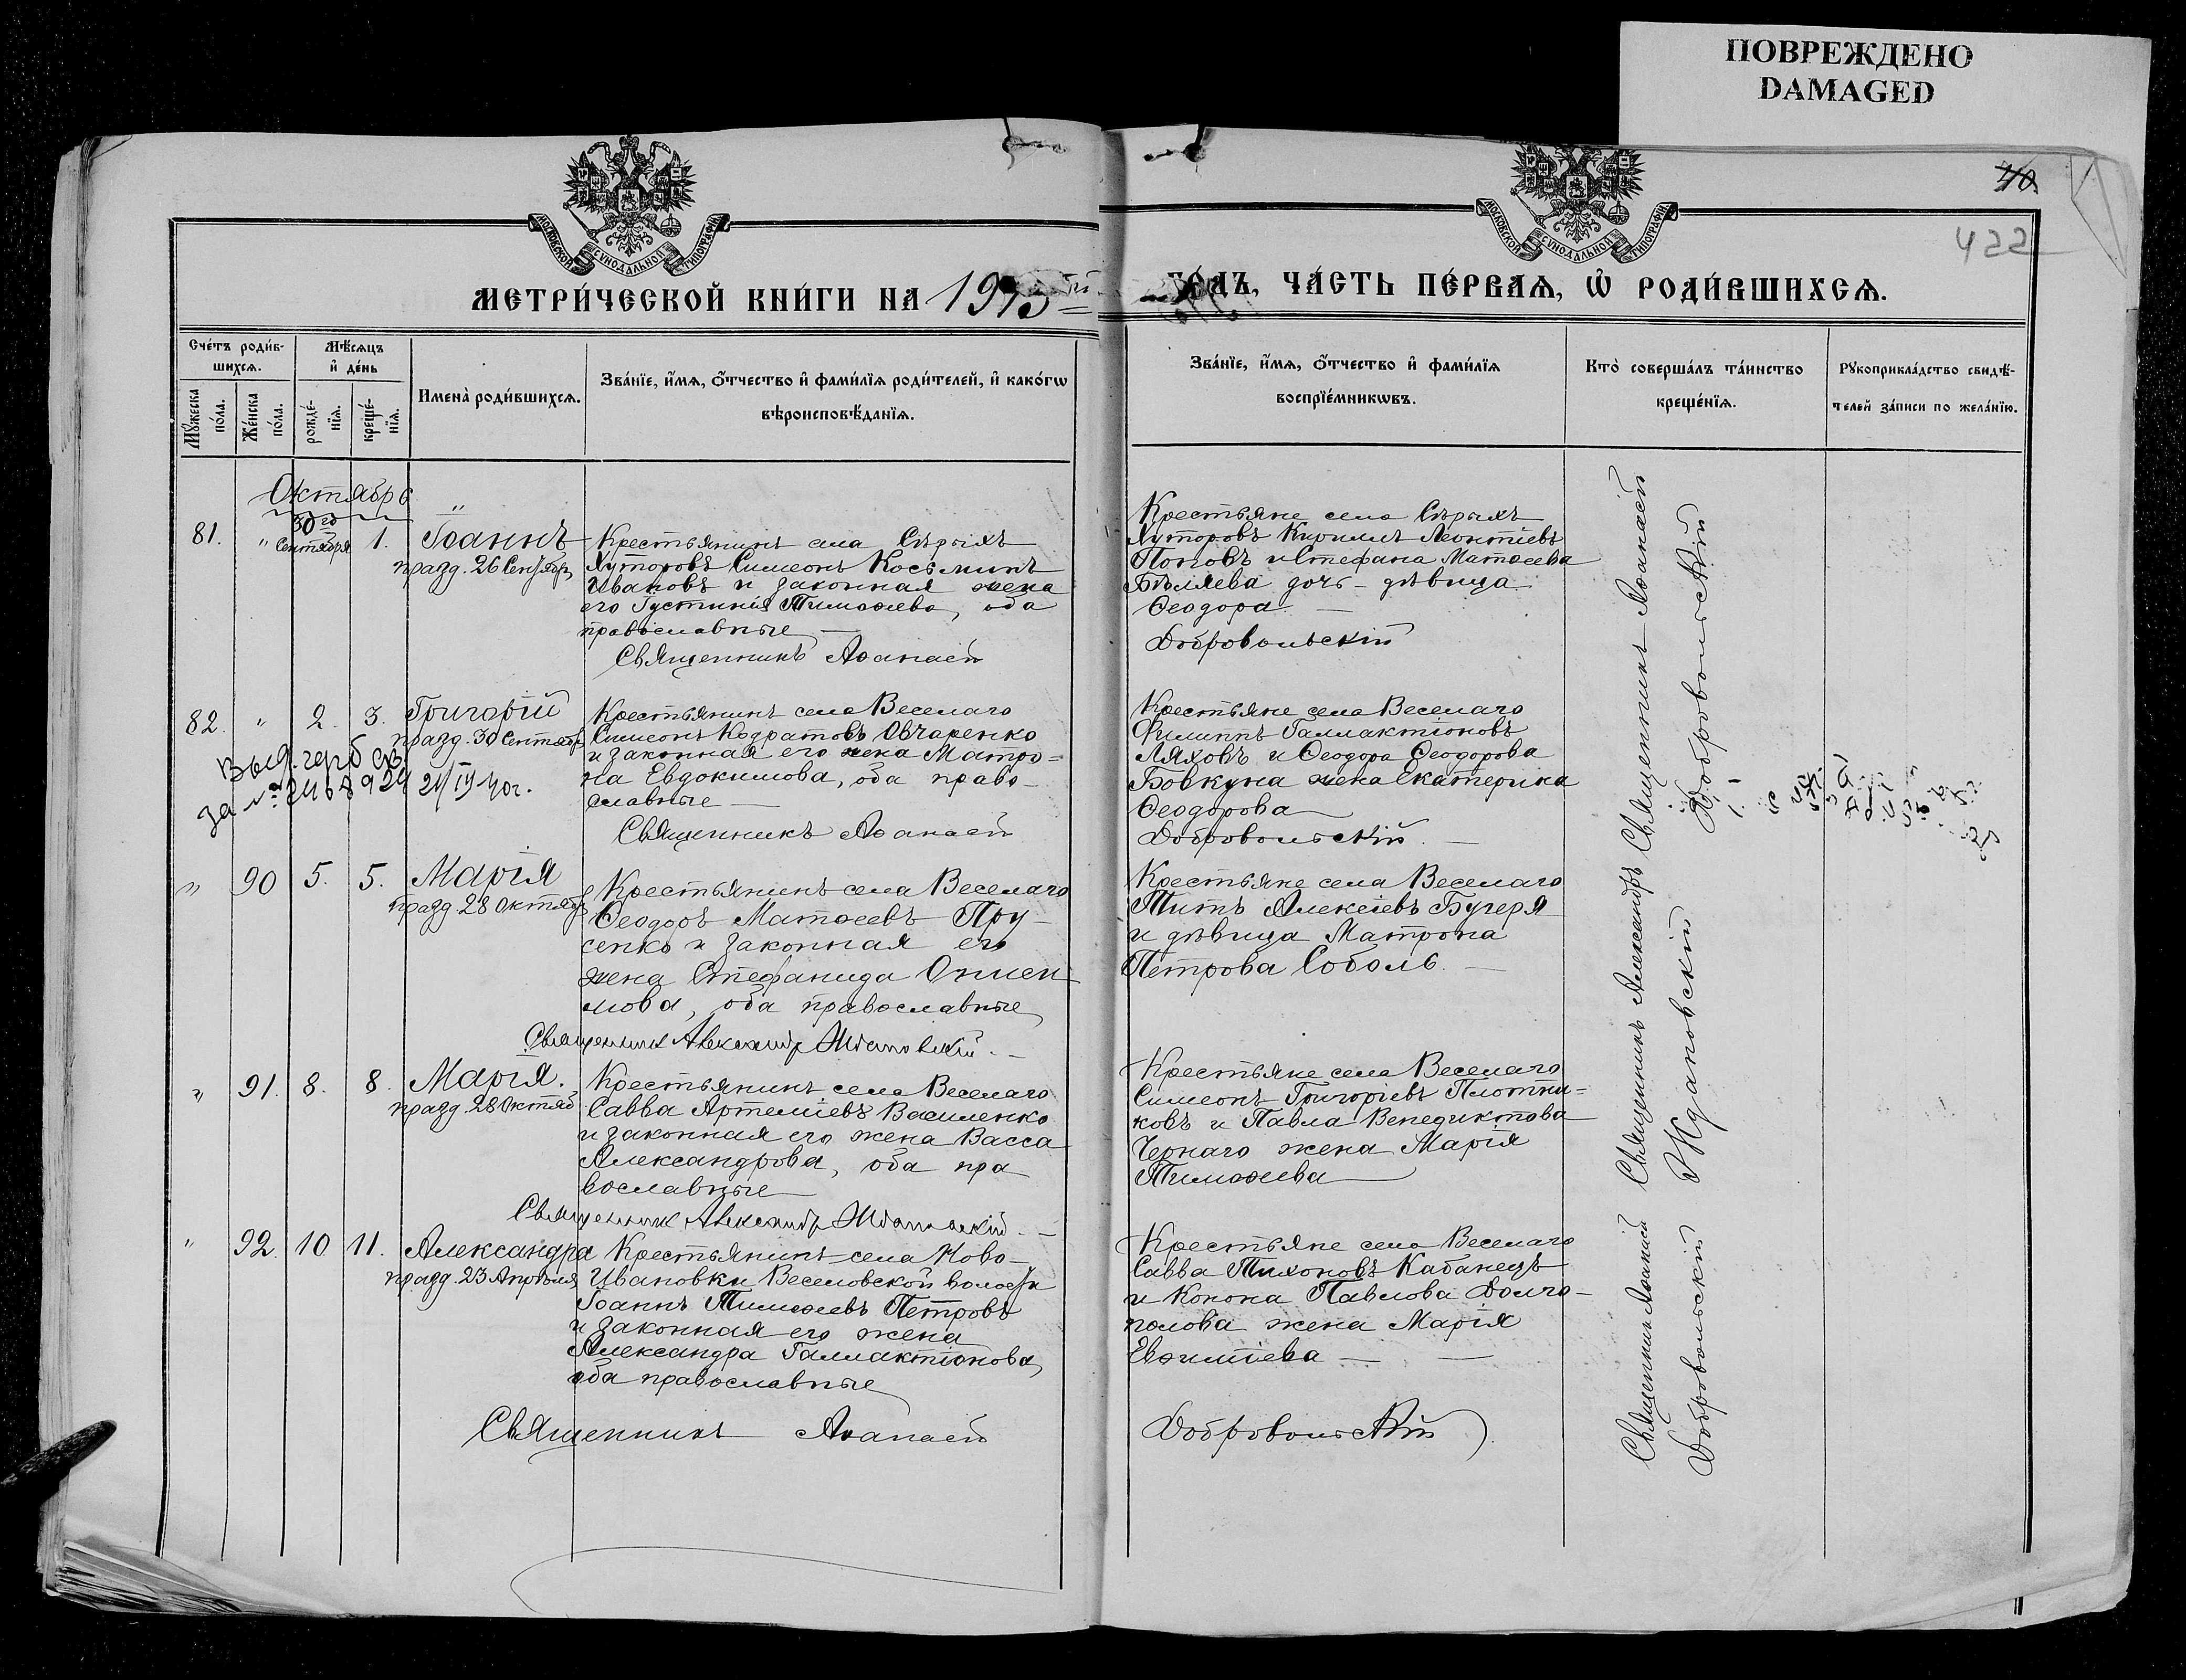 ПОВРЕЖДЕНО
DAMAGED
40
422
МОСКОВСКОЙ СѴНОДАЛЬНОЙ ТИПОГРАФІИ
МОСКОВСКОЙ СѴНОДАЛЬНОЙ ТИПОГРАФІИ
МЕТРИ́ЧЕСКОЙ КНИ́ГИ НА 1915 ГО́ДЪ, ЧА́СТЬ ПЕ́РВАѦ, Ѽ РОДИ́ВШИХСѦ.
Сче́тъ роди́в-
шихсѧ.
Мꙋ́жеска по́ла.
Же́нска по́ла.
Мѣ́сѧцъ
и҆ де́нь
рожде́-
нїѧ.
креще́-
нїѧ.
Имена̀ роди́вшихсѧ.
Зва́нїе, и҆́мѧ, ѻ҆́тчество и҆ фами́лїѧ роди́телей, и҆ како́гѡ
вѣроисповѣ́данїѧ.
Зва́нїе, и҆́мѧ, ѻ҆́тчество и҆ фами́лїѧ
воспрїе́мникѡвъ.
Кто̀ соверша́лъ та́инство
креще́нїѧ.
Рꙋкоприкла́дство свидѣ́-
телей за́писи по жела́нїю.
Октябрь
81. " 30го Сентября 1. Іоаннъ
празд. 26 Сентябр.
Крестьянинъ села Сѣрыхъ
Хуторовъ Симеонъ Косьминъ
Ивановъ и законная жена
его Іустинія Тимоѳеева, оба
православные
Священникъ Аѳанасій
Крестьяне села Сѣрыхъ
Хуторовъ Кириллъ Леонтіевъ
Поповъ и Стефана Матѳеева
Бѣляева дочь - дѣвица
Ѳеодора.
Добровольскій
82. " 2. 3. Григорій
празд. 30 Сентябр.
Крестьянинъ села Веселаго
Симеонъ Кодратовъ Овчаренко
и законная его жена Матро=
на Евдокимова, оба право-
славные
Священникъ Аѳанасій
за № 2468924 21/IV 40г.
Крестьяне села Веселаго
Филиппъ Галлактіоновъ
Ляховъ и Ѳеодора Ѳеодорова
Бовкуна жена Екатерина
Ѳеодорова
Добровольскій.
Священникъ Аѳанасій
Добровольскій
" 90 5. 5. Марія
празд 28 октябр
Крестьянинъ села Веселаго
Ѳеодоръ Матѳеевъ Пру-
сенко и законная его
жена Стефанида Онисен
мова, оба православные
Священник Александр Ждановский.
Крестьяне села Веселаго
Титъ Алексіевъ Бугеря
и дѣвица Матрона
Петрова Соболь.
" 91. 8. 8. Марія.
празд. 28 Октяб.
Крестьянинъ села Веселаго
Савва Артеміевъ Василенко
и законная его жена Васса
Александрова, оба пра
вославные
Священник Александр Ждановский.
Крестьяне села Веселаго
Симеонъ Григоріевъ Плотни=
ковъ и Павла Венедиктова
Чернаго жена Марія
Тимоѳеева
Священникъ Александръ
Ждановскій
" 92. 10 11. Александра
празд. 23 Апрѣля
Крестьянинъ села Ново-
Ивановки Веселовской волости
Іоаннъ Тимоѳеевъ Петровъ
и законная его жена
Александра Галлактіонова,
оба православные
Священникъ Аѳанасій
Крестьяне села Веселаго
Савва Тихоновъ Кабанецъ
и Конона Павлова Долго-
полова жена Марія
Евѳиміева
Добровольскій
Священникъ Аѳанасій
Добровольскій